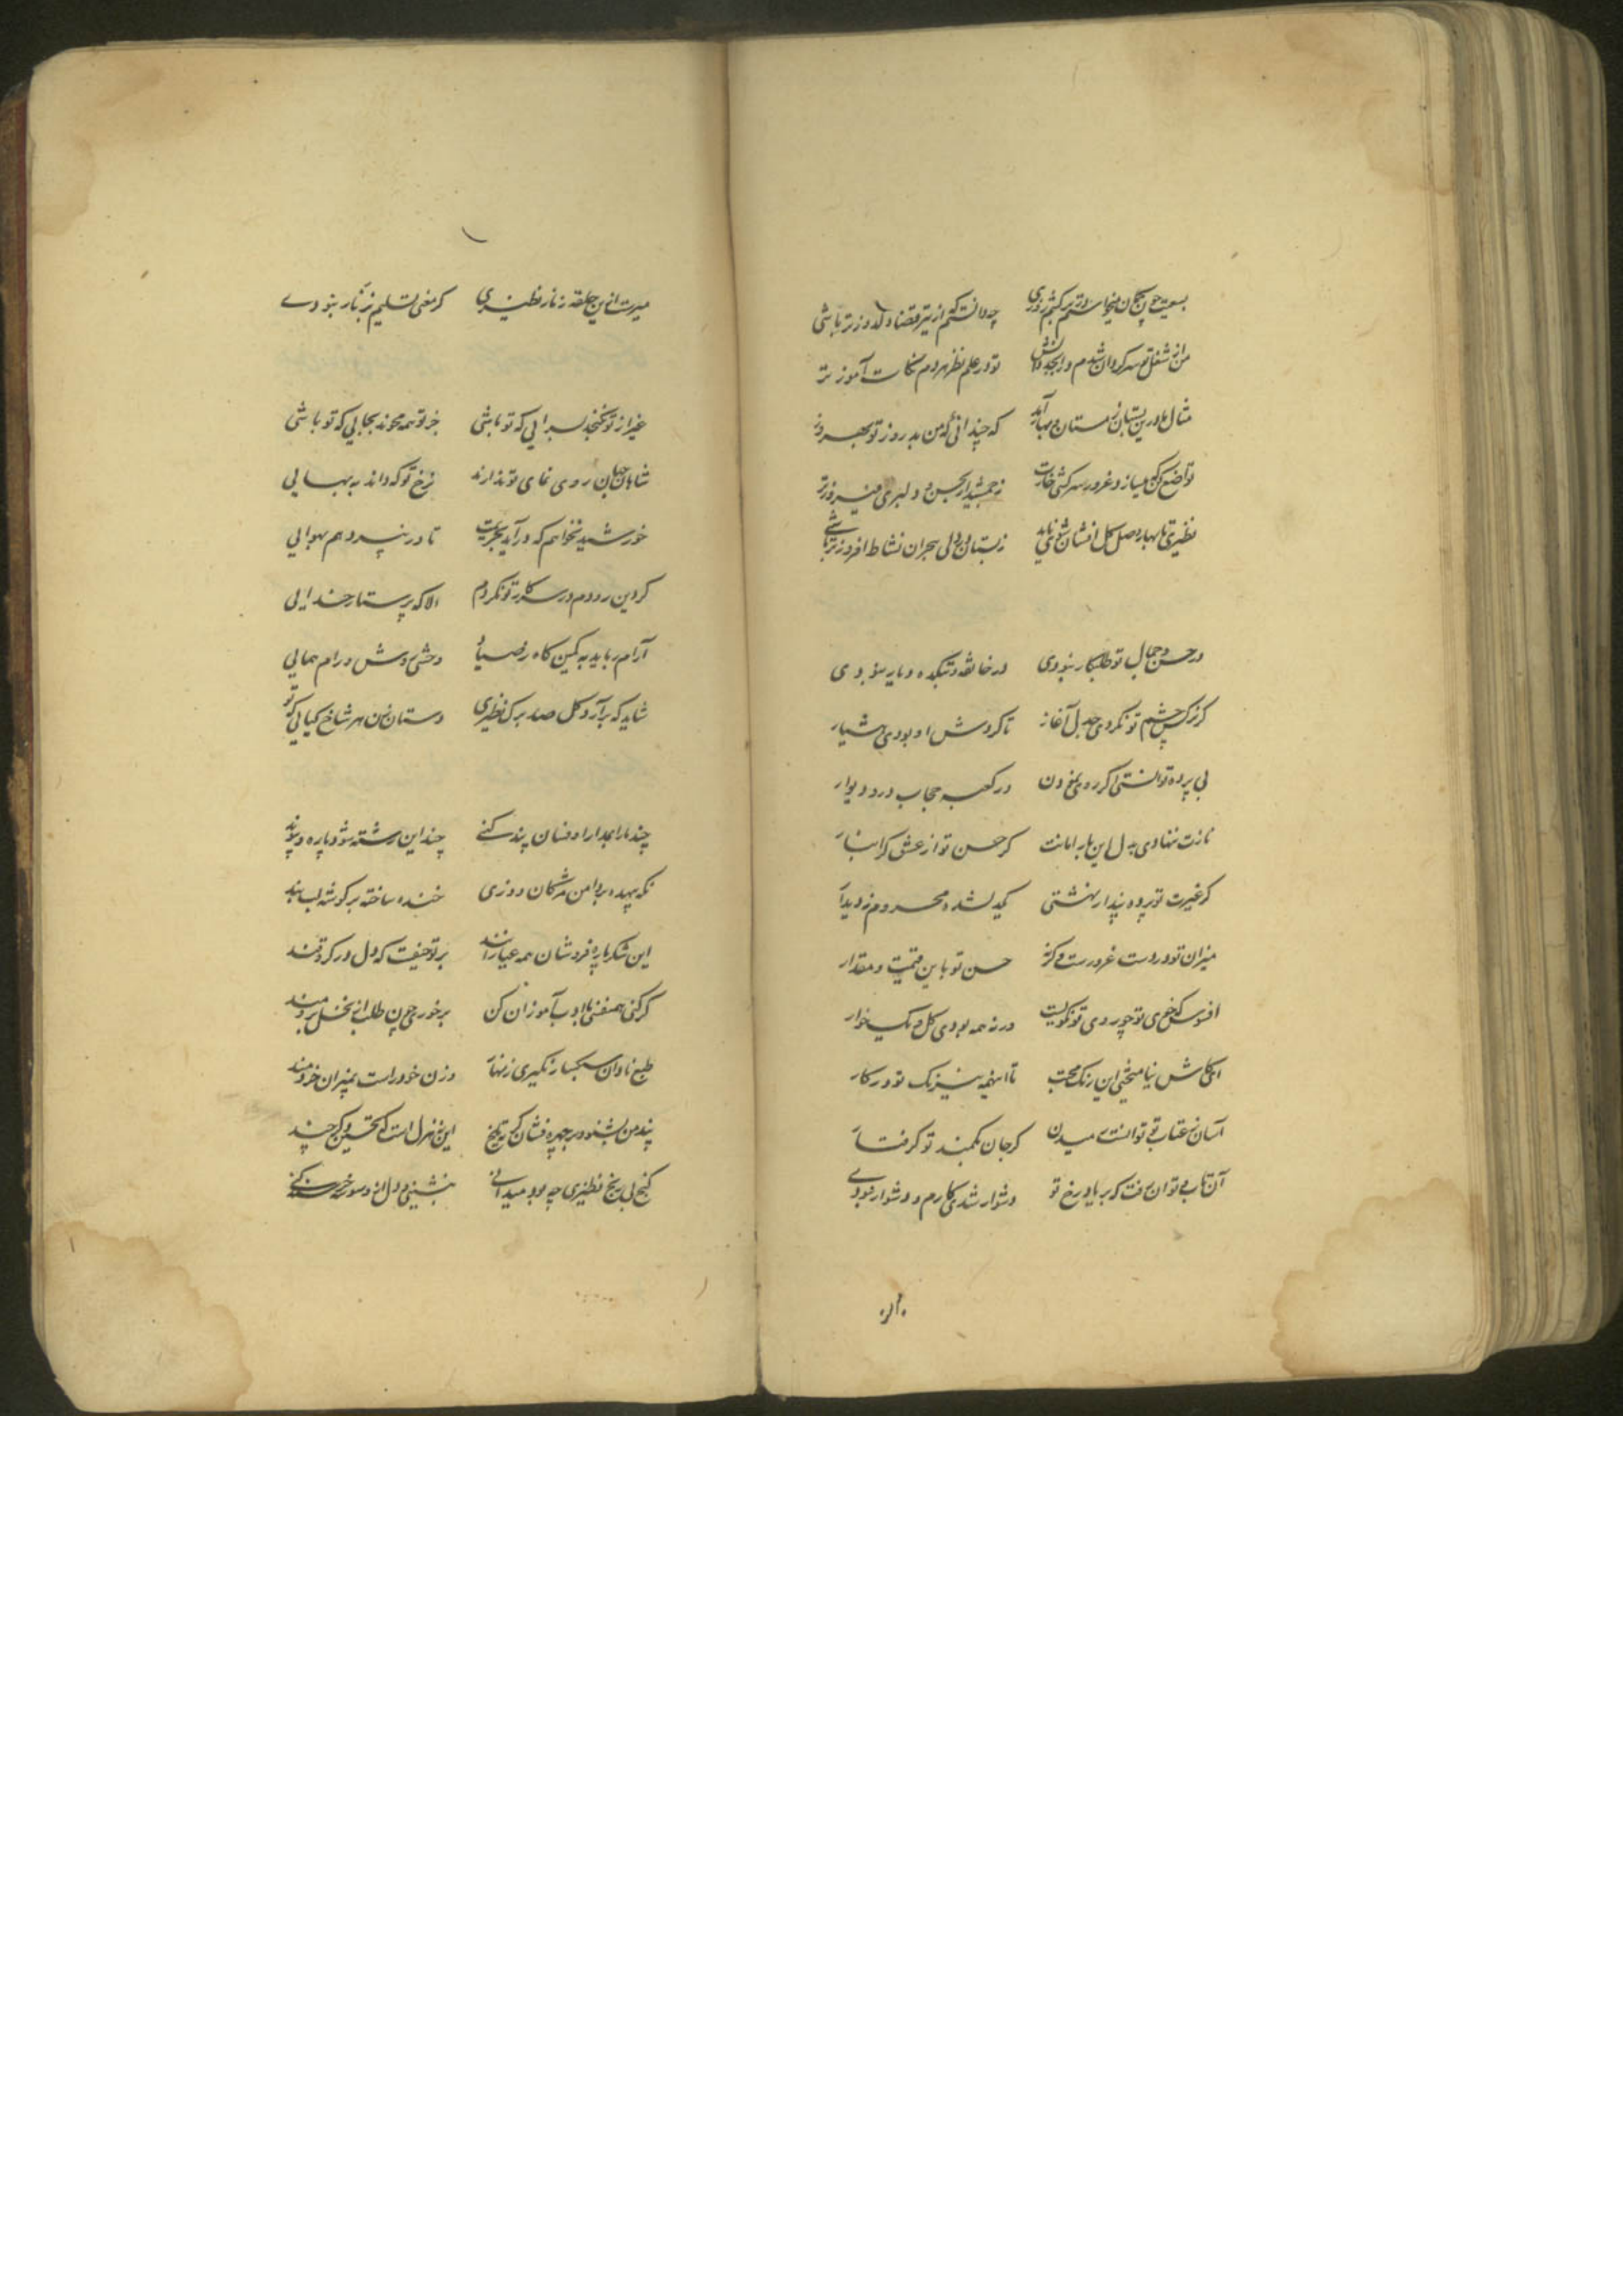 بسویت چون چکان میخواستم تیر کشم روزی چه دانستم که از تیر قضا دلدوزتر باشی
من از شغل تو سرگردان شدم در ابجد دانش تو در علم نظر هر دم نکات آموزتر
مثال ما درین بستان زمستان و بهار آمد که چندانی که من بد روز تو بهروز
تواضع کن نیاز و غرور سرکشی زجمشید از حسن و دلبری فیروزتر
نظیری تا بهار وصل گل افشان شوی باید زبستان در دل هجران نشاط افروزتر باشی
در حسن و جمال تو طلبکار نبودی در خانقه و بتکده دیار نبودی
گر نرگس چشم تو نکردی جدل آغاز تا گردش او بودی هشیار
بی پرده توانستی اگر روی نمودن در کعبه حجاب در و دیوار
نازت ننهادی به دل این بار امانت گر حسن تو از عشق گرانبار
گر غیرت تو پرده پندار نهشتی یکدلشده محروم ز دیدار
میزان تو در دست غرورست وگرنه حسن تو باین قیمت و مقدار
افسوس که خوی تو چو روی تو نکو نیست ورنه همه بودی گل و یک خار
ایکاش نیامیختی این رنگ محبت تا اینهمه نیرنگ تو در کار
آسان ز عقاب تو توانست رمیدن گر جان بکمند تو گرفتار
آن تاب توان رفت که بر یاد رخ تو دشوار شدی کارم و دشوار نبودی
میرست ازین حلقه زنار نظیری گر مغی تسلیم ز زنار نبودی
غیر از تو نگنجد بسرایی که تو باشی جز تو همه محوند بجایی که تو باشی
شاهان جهان روی نمای تو ندارند نرخ تو که داند به بهایی
خورشید نخواهم که درآید بحریمت تا در نپرد هم بهوایی
گر دین رودم در سر کار تو نگردم الا که پرستار خدایی
آرام رباید به کمین گاه وحشی روش و رام همایی
شاید که برآرد گل صد برگ نظیری دستان زن هر شاخ گیایی که تو
چند ما را بمدارا و فسان پند کنی چند این رشته شود پاره و پیوند
نگه بیهده بر دامن مژگان دوزی خنده ساخته بر گوشه لب بند
این شکرپاره فروشان همه عیارانند بر تو حیفست که دل در گرو قند
گر کنی همنفسی با ادب آموزان کن برخوری چون طلب از نخل برومند
طبع نادان سبکسار نگیری زنهار وزن خود راست بمیزان خردمند
پند من بشنو و بر چهره فشان گریه تلخ این نه هزل است که تحسین وکر چند
گنج بی رنج نظیری چه بود میدانی بنشینی و دل آزرده خرسند کنی